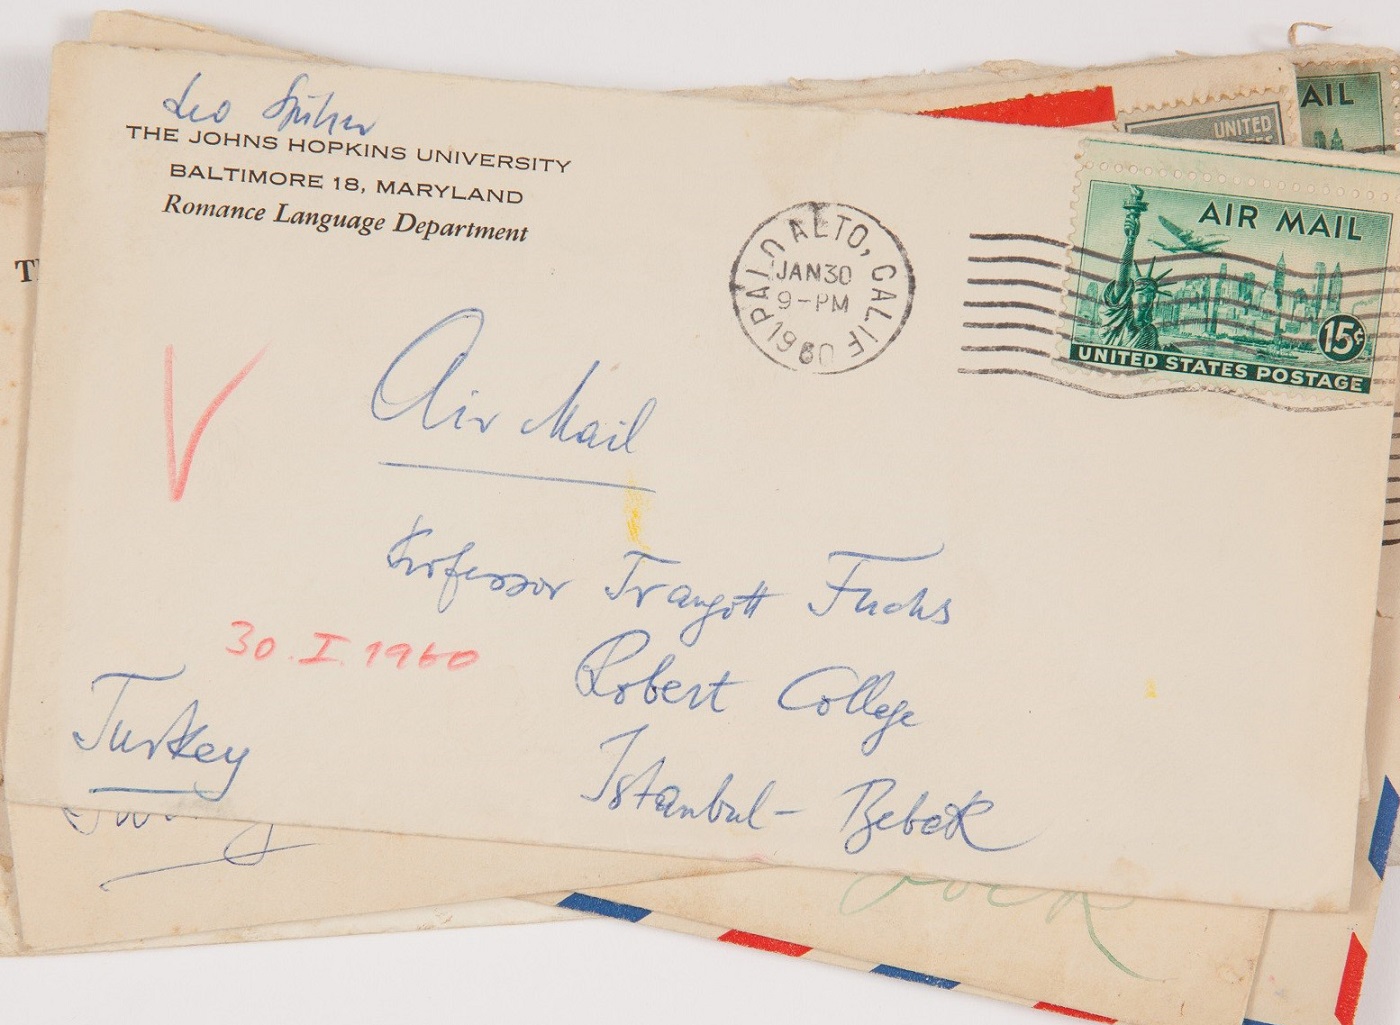 Leo Spitzer
THE JOHNS HOPKINS UNIVERSITY
BALTIMORE 18, MARYLAND
Romance Language Department
PALO ALTO, CALIF
JAN 30
9-PM
1960
AIR MAIL
15¢
UNITED STATES POSTAGE
UNITED
AIL
Air Mail
Professor Traugott Fuchs
Robert College
Istanbul - Bebek
30. I. 1960
Turkey